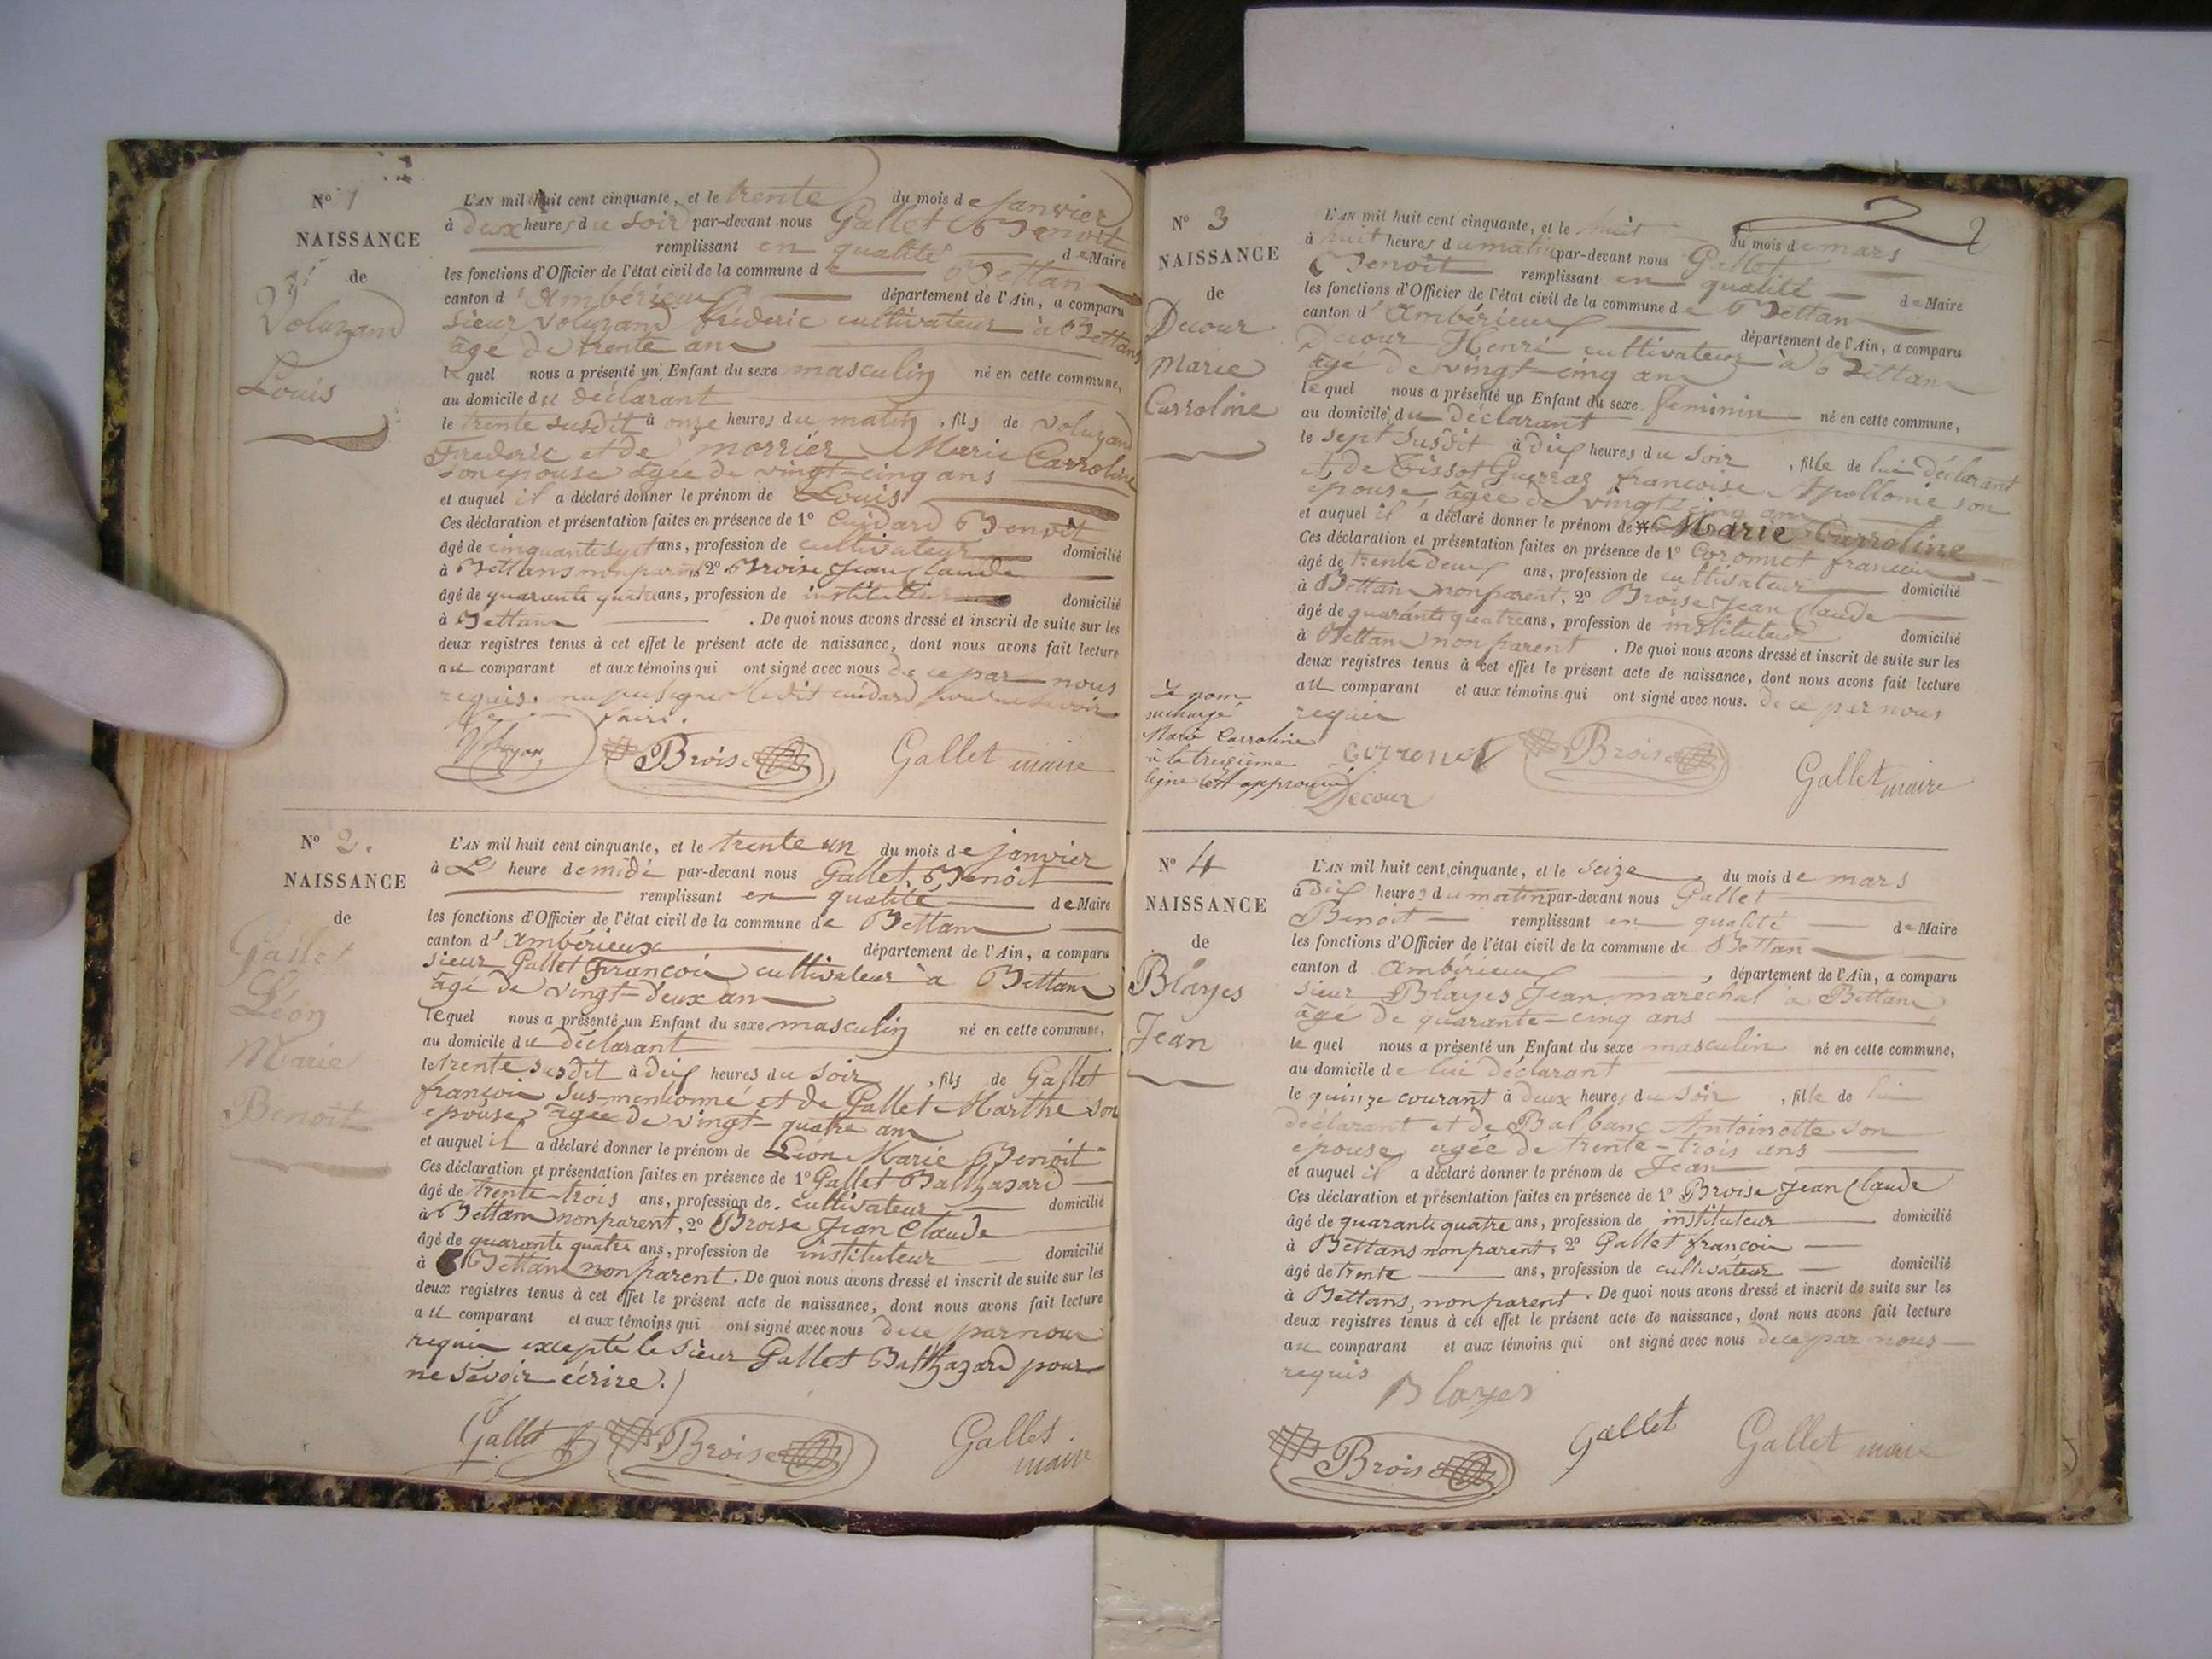 N° 1
NAISSANCE
de
Voluzand
Louis
L'AN mil huit cent cinquante, et le trente du mois de janvier
à deux heures du soir par-devant nous Gallet Benoit
remplissant en qualité de Maire
les fonctions d'Officier de l'état civil de la commune de Bettan
canton d'Ambérieux département de l'Ain, a comparu
sieur Voluzand Fréderic cultivateur à Bettans
âgé de trente ans
lequel nous a présenté un Enfant du sexe masculin né en cette commune,
au domicile du déclarant
le trente susdit à onze heures du matin, fils de Voluzand
Frederic et de morrier Marie Carroline
son epouse agée de vingt-cinq ans
et auquel il a déclaré donner le prénom de Louis
Ces déclaration et présentation faites en présence de 1° Cuidard Benoit
âgé de cinquante sept ans, profession de cultivateur domicilié
à Bettans non parent 2° Broise Jean Claude
âgé de quarante quatre ans, profession de instituteur domicilié
à Bettans . De quoi nous avons dressé et inscrit de suite sur les
deux registres tenus à cet effet le présent acte de naissance, dont nous avons fait lecture
au comparant et aux témoins qui ont signé avec nous de ce par nous
requis. ledit cuidard savoir
faire.
Broise Gallet maire
N° 2.
NAISSANCE
de
Gallet
Léon
Marie
Benoit
L'AN mil huit cent cinquante, et le trente un du mois de janvier
à L heure de midi par-devant nous Gallet Benoit
remplissant en qualité de Maire
les fonctions d'Officier de l'état civil de la commune de Bettans
canton d'Ambérieux département de l'Ain, a comparu
sieur Gallet François cultivateur à Bettans
âgé de vingt-deux ans
lequel nous a présenté un Enfant du sexe masculin né en cette commune,
au domicile du déclarant
le trente susdit à dix heures du soir, fils de Gallet
françois sus-mentionné et de Gallet Marthe son
epouse, agée de vingt-quatre ans
et auquel il a déclaré donner le prénom de Léon Marie Benoit
Ces déclaration et présentation faites en présence de 1° Gallet Balthazard
âgé de trente-trois ans, profession de cultivateur domicilié
à Bettans non parent, 2° Broise Jean Claude
âgé de quarante quatre ans, profession de instituteur domicilié
à Bettans non parent. De quoi nous avons dressé et inscrit de suite sur les
deux registres tenus à cet effet le présent acte de naissance, dont nous avons fait lecture
au comparant et aux témoins qui ont signé avec nous de ce par nous
requis excepté le sieur Gallet Balthazard pour
ne savoir écrire.
Gallet Broise Gallet maire
2
N° 3
NAISSANCE
de
Decour
Marie
Carroline
L'AN mil huit cent cinquante, et le huit du mois de mars
à huit heures du matin par-devant nous Gallet
Benoit remplissant en qualité de Maire
les fonctions d'Officier de l'état civil de la commune de Bettan
canton d'Ambérieux département de l'Ain, a comparu
Decour Henri cultivateur à Bettans
âgé de vingt-cinq ans
lequel nous a présenté un Enfant du sexe feminin né en cette commune,
au domicile du déclarant
le sept susdit à dix heures du soir, fille de lui déclarant
et de Tissot Guerraz françoise Apollonie son
epouse agée de vingt-cinq ans
et auquel il a déclaré donner le prénom de Marie Carroline
Ces déclaration et présentation faites en présence de 1° Coronnet françois
âgé de trente deux ans, profession de cultivateur domicilié
à Bettans non parent, 2° Broise Jean Claude
âgé de quarante quatre ans, profession de instituteur domicilié
à Bettans non parent. De quoi nous avons dressé et inscrit de suite sur les
deux registres tenus à cet effet le présent acte de naissance, dont nous avons fait lecture
au comparant et aux témoins qui ont signé avec nous. de ce par nous
requis
Le nom
surchargé
Marie Carroline
à la treizième
ligne est approuvé
Broise Gallet maire
Decour
N° 4
NAISSANCE
de
Blayes
Jean
L'AN mil huit cent cinquante, et le seize du mois de mars
à dix heures du matin par-devant nous Gallet
Benoit remplissant en qualité de Maire
les fonctions d'Officier de l'état civil de la commune de Bettans
canton d Ambérieux, département de l'Ain, a comparu
sieur Blayes Jean maréchal à Bettans
âgé de quarante-cinq ans
lequel nous a présenté un Enfant du sexe masculin né en cette commune,
au domicile de lui déclarant
le quinze courant à deux heures du soir, fille de lui
déclarant et de Balbanc Antoinette son
épouse, agée de trente-trois ans
et auquel il a déclaré donner le prénom de Jean
Ces déclaration et présentation faites en présence de 1° Broise Jean Claude
âgé de quarante quatre ans, profession de instituteur domicilié
à Bettans non parent, 2° Gallet françois
âgé de trente ans, profession de cultivateur domicilié
à Bettans, non parent. De quoi nous avons dressé et inscrit de suite sur les
deux registres tenus à cet effet le présent acte de naissance, dont nous avons fait lecture
au comparant et aux témoins qui ont signé avec nous de ce par nous
requis
Blayes
Broise Gallet Gallet maire